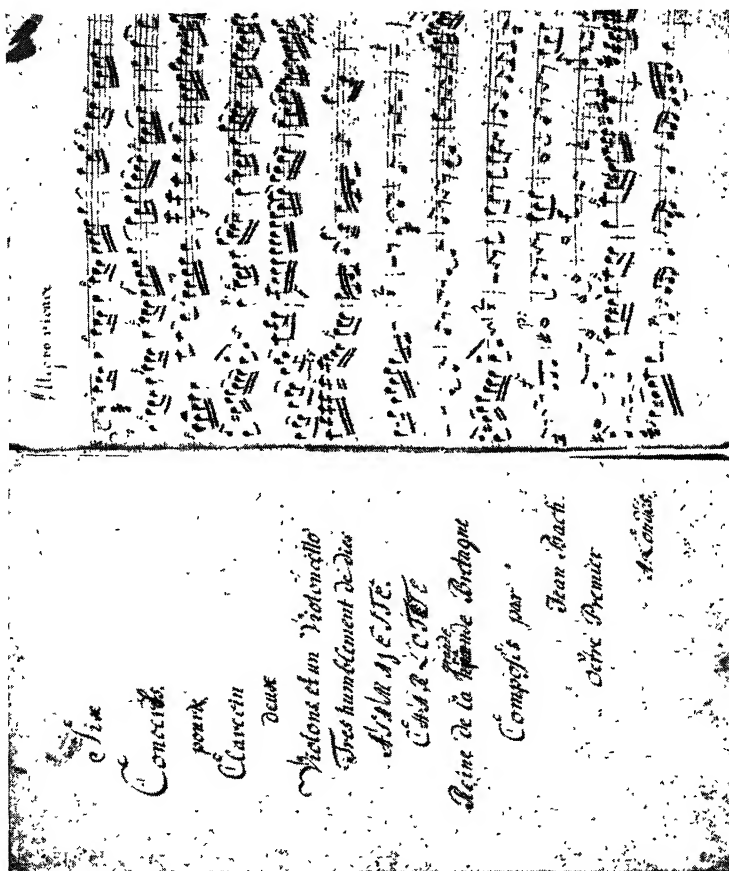 Allegro
Six
Concerts
pour le
Clavecin
deux
Violons et un Violoncello
Tres humblement de dies
A SA MAJESTE.
CHARLOTTE
Reine de la grande Bretagne
Composés par
Jean Bach.
Oevre Premier
A Londres.